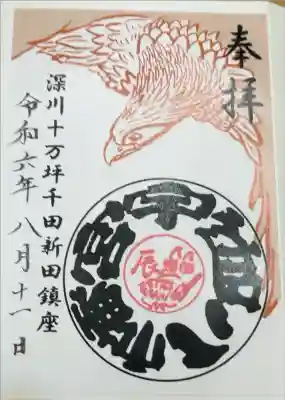 奉拝
宇迦八幡宮
辰
深川十万坪千田新田鎮座
令和六年八月十一日